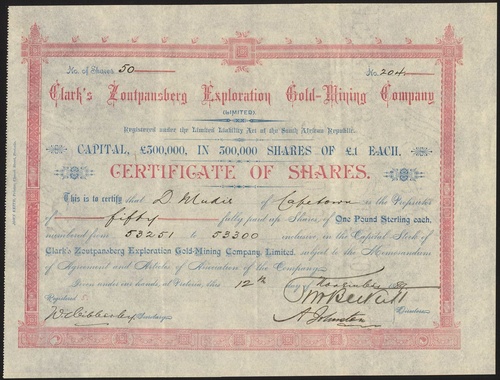 No. of Shares 50
No. 204
Clark's Zoutpansberg Exploration Gold-Mining Company
(LIMITED).
Registered under the Limited Liability Act of the South African Republic.
CAPITAL, £500,000, IN 500,000 SHARES OF £1 EACH.
CERTIFICATE OF SHARES.
This is to certify that D. Mudie of Capetown is the Proprietor
of fifty fully paid up Shares, of One Pound Sterling each,
numbered from 53251 to 53300 inclusive, in the Capital Stock of
Clark's Zoutpansberg Exploration Gold-Mining Company, Limited, subject to the Memorandum
of Agreement and Articles of Association of the Company.
Given under our hands, at Pretoria, this 12th day of November
Registered
Secretary.
A Johnston
Directors.